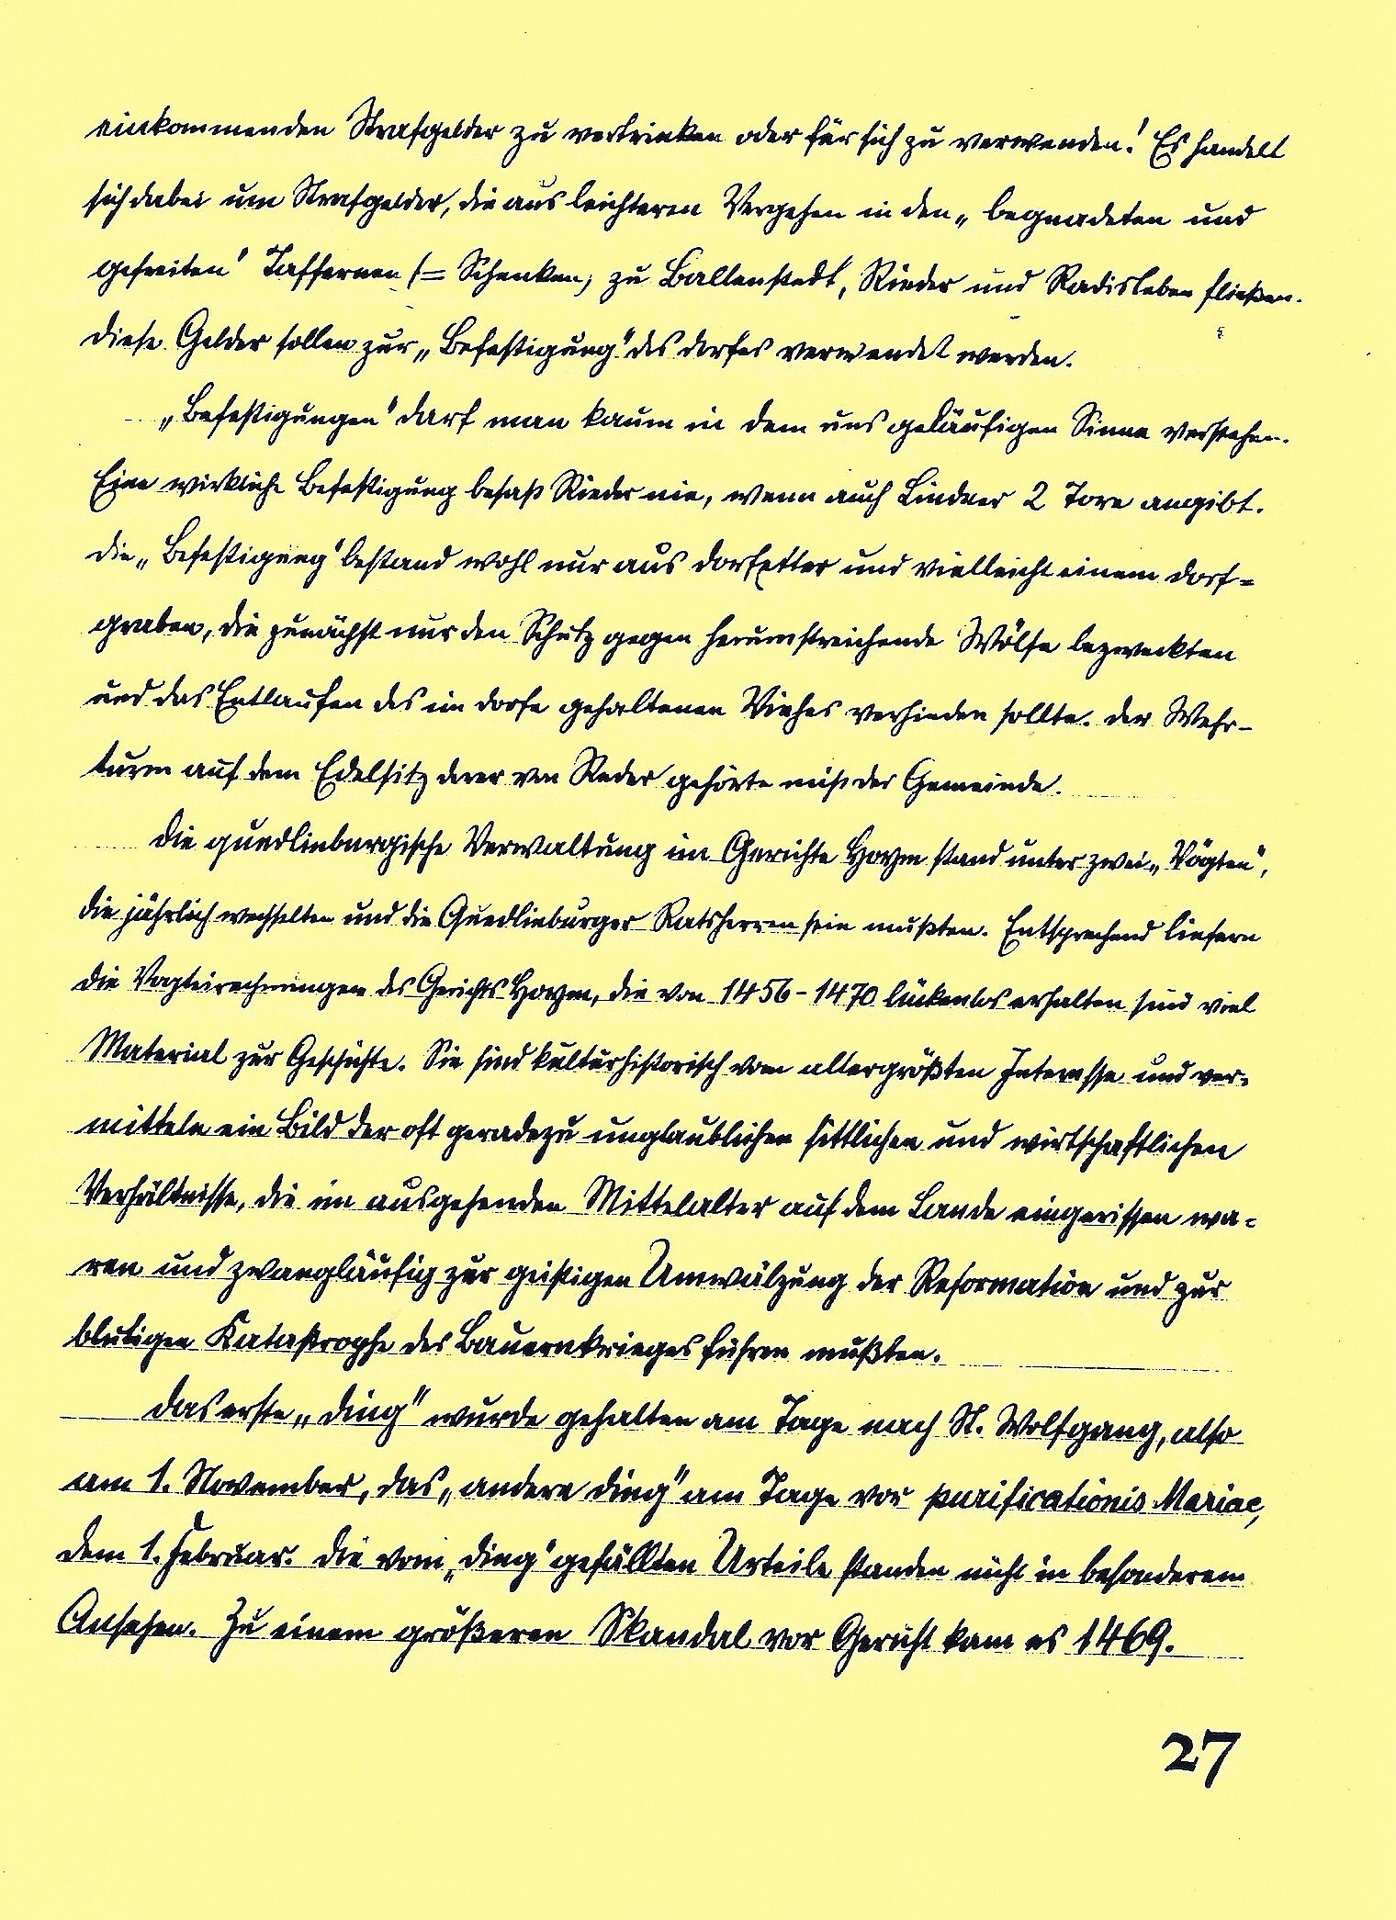 einkommenden Strafgelder zu vertrinken oder für sich zu verwenden! Es handelt
sich dabei um Strafgelder, die aus leichteren Vergehen in den „begnadeten und
gefreiten" Taffernen (= Schenken) zu Ballenstedt, Rieder und Radisleben fließen.
Diese Gelder sollen zur „Befestigung" des Dorfes verwendet werden.
„Befestigungen" darf man kaum in dem uns geläufigen Sinne verstehen.
Eine wirkliche Befestigung besaß Rieder nie, wenn auch Lindner 2 Tore angibt.
Die „Befestigung" bestand wohl nur aus Dorfetter und vielleicht einem Dorf=
graben, die zunächst nur den Schutz gegen herumstreichende Wölfe bezweckten
und das Entlaufen des im Dorfe gehaltenen Viehes verhinden sollte. Der Wehr-
turm auf dem Edelsitz derer von Reder gehörte nicht der Gemeinde.
Die quedlinburgische Verwaltung im Gerichte Hoym stand unter zwei „Vögten",
die jährlich wechselten und die Quedlinburger Ratsherren sein mußten. Entsprechend liefern
die Vogteirechnungen des Gerichts Hoym, die von 1456-1470 lückenlos erhalten sind viel
Material zur Geschichte. Sie sind kulturhistorisch vom allergrößten Interesse und ver=
mitteln ein Bild der oft geradezu unglaublichen sittlichen und wirtschaftlichen
Verhältnisse, die im ausgehenden Mittelalter auf dem Lande eingerissen wa=
ren und zwangläufig zur geistigen Umwälzung der Reformation und zur
blutigen Katastrophe des Bauernkrieges führen mußten.
Das erste „Ding" wurde gehalten am Tage nach St. Wolfgang, also
am 1. November, das „andere Ding" am Tage vor purificationis Mariae,
dem 1. Februar. Die vom „Ding" gefällten Urteile standen nicht in besonderem
Ansehen. Zu einem größeren Skandal vor Gericht kam es 1469.
27